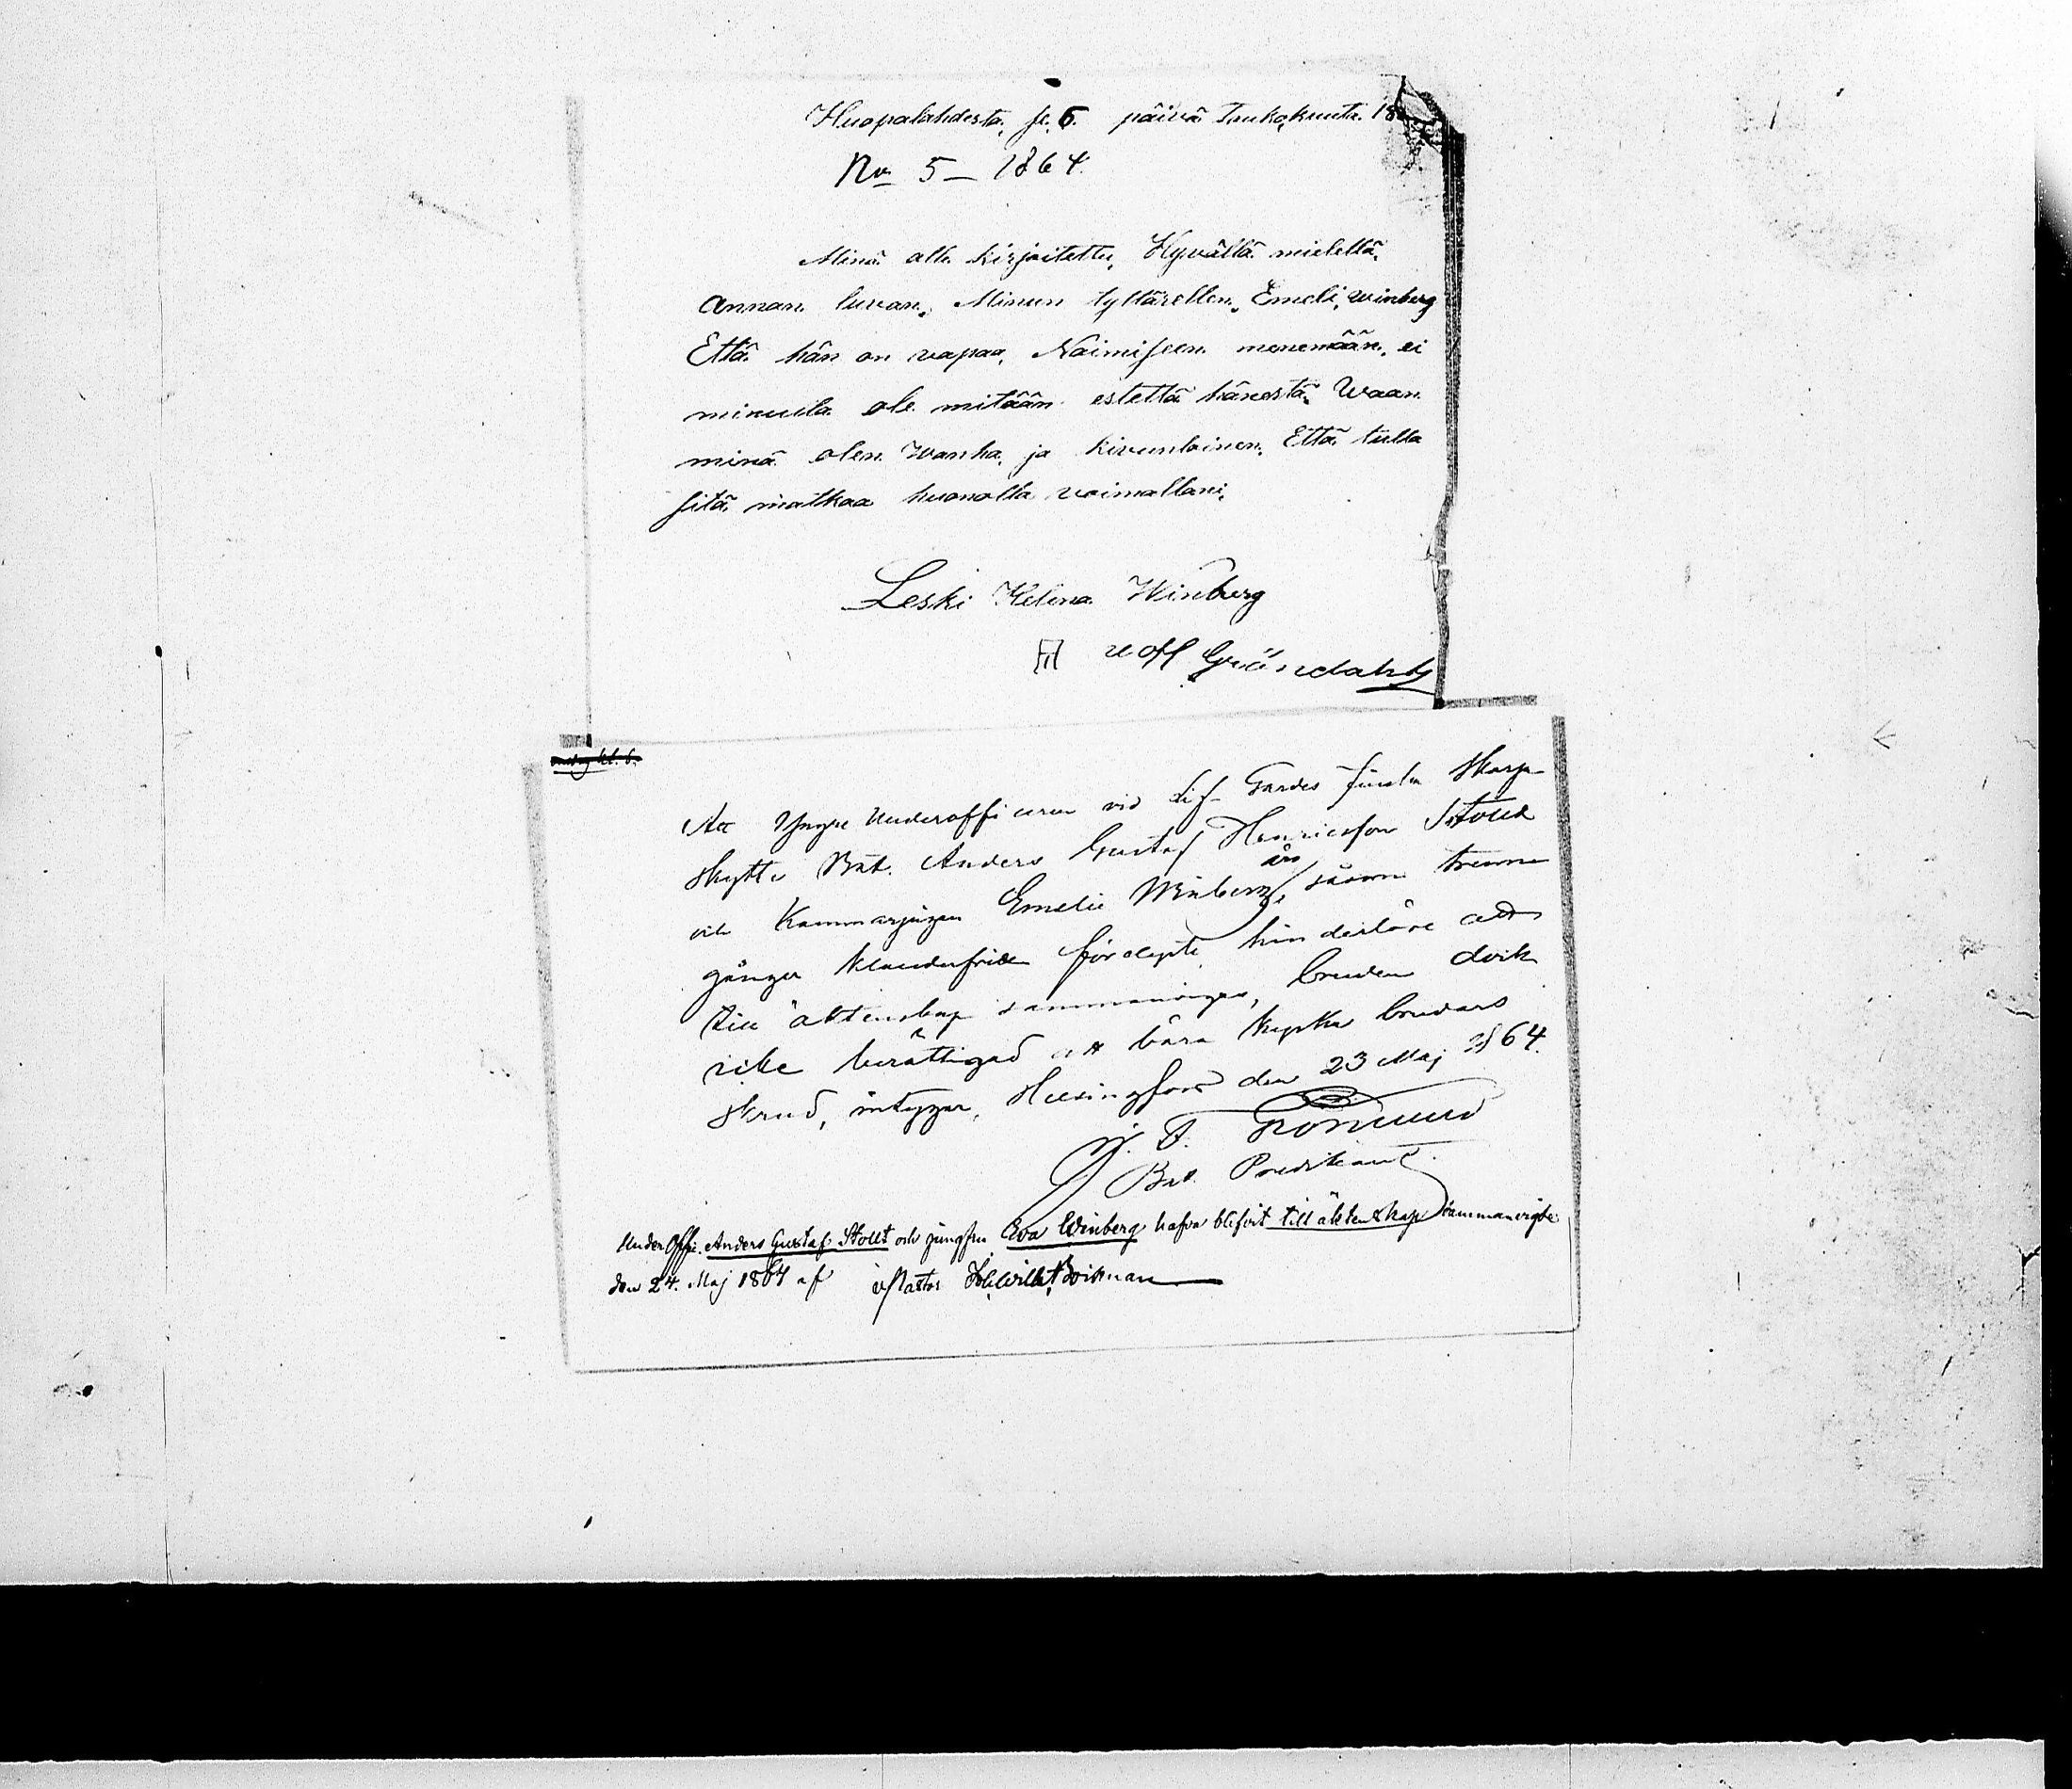 Huopalahdesta, se. 6. päivä Toukokuuta. 18
No 5 – 1864.
Minä alla kirjoitettu, Hyvällä mielellä,
annan luvan, Minun tyttärellen, Emeli, winberg
Että hän on vapaa, Naimiseen menemään, ei
minulla ole mitään estettä hänestä, Waan
minä olen Wanha, ja kivunloinen, Että tulla
sitä matkaa huonolla voimallani,
Leski Helena Winberg
uoff Gröndahl
Att Yngre Underofficeren vid Lif Gardes finska Skarp
skytte Bat. Anders Gustaf Henricsson Stoud
och Kammarpigan Emelie Winberg, äro såsom trenne
gånger klanderfritt förelyste hinderlöse att
till äktenskap sammanvigas, bruden dock
icke berättigad att bära kyska brudars
skrud, intygar, Helsingfors den 23 Maj 1864.
Bat. Predikant.
Under Offic. Anders Gustaf Stout och jungfru Eva Winberg hafva blifvit till äktenskap sammanvigde
den 24. Maj 1864 af v Pastor